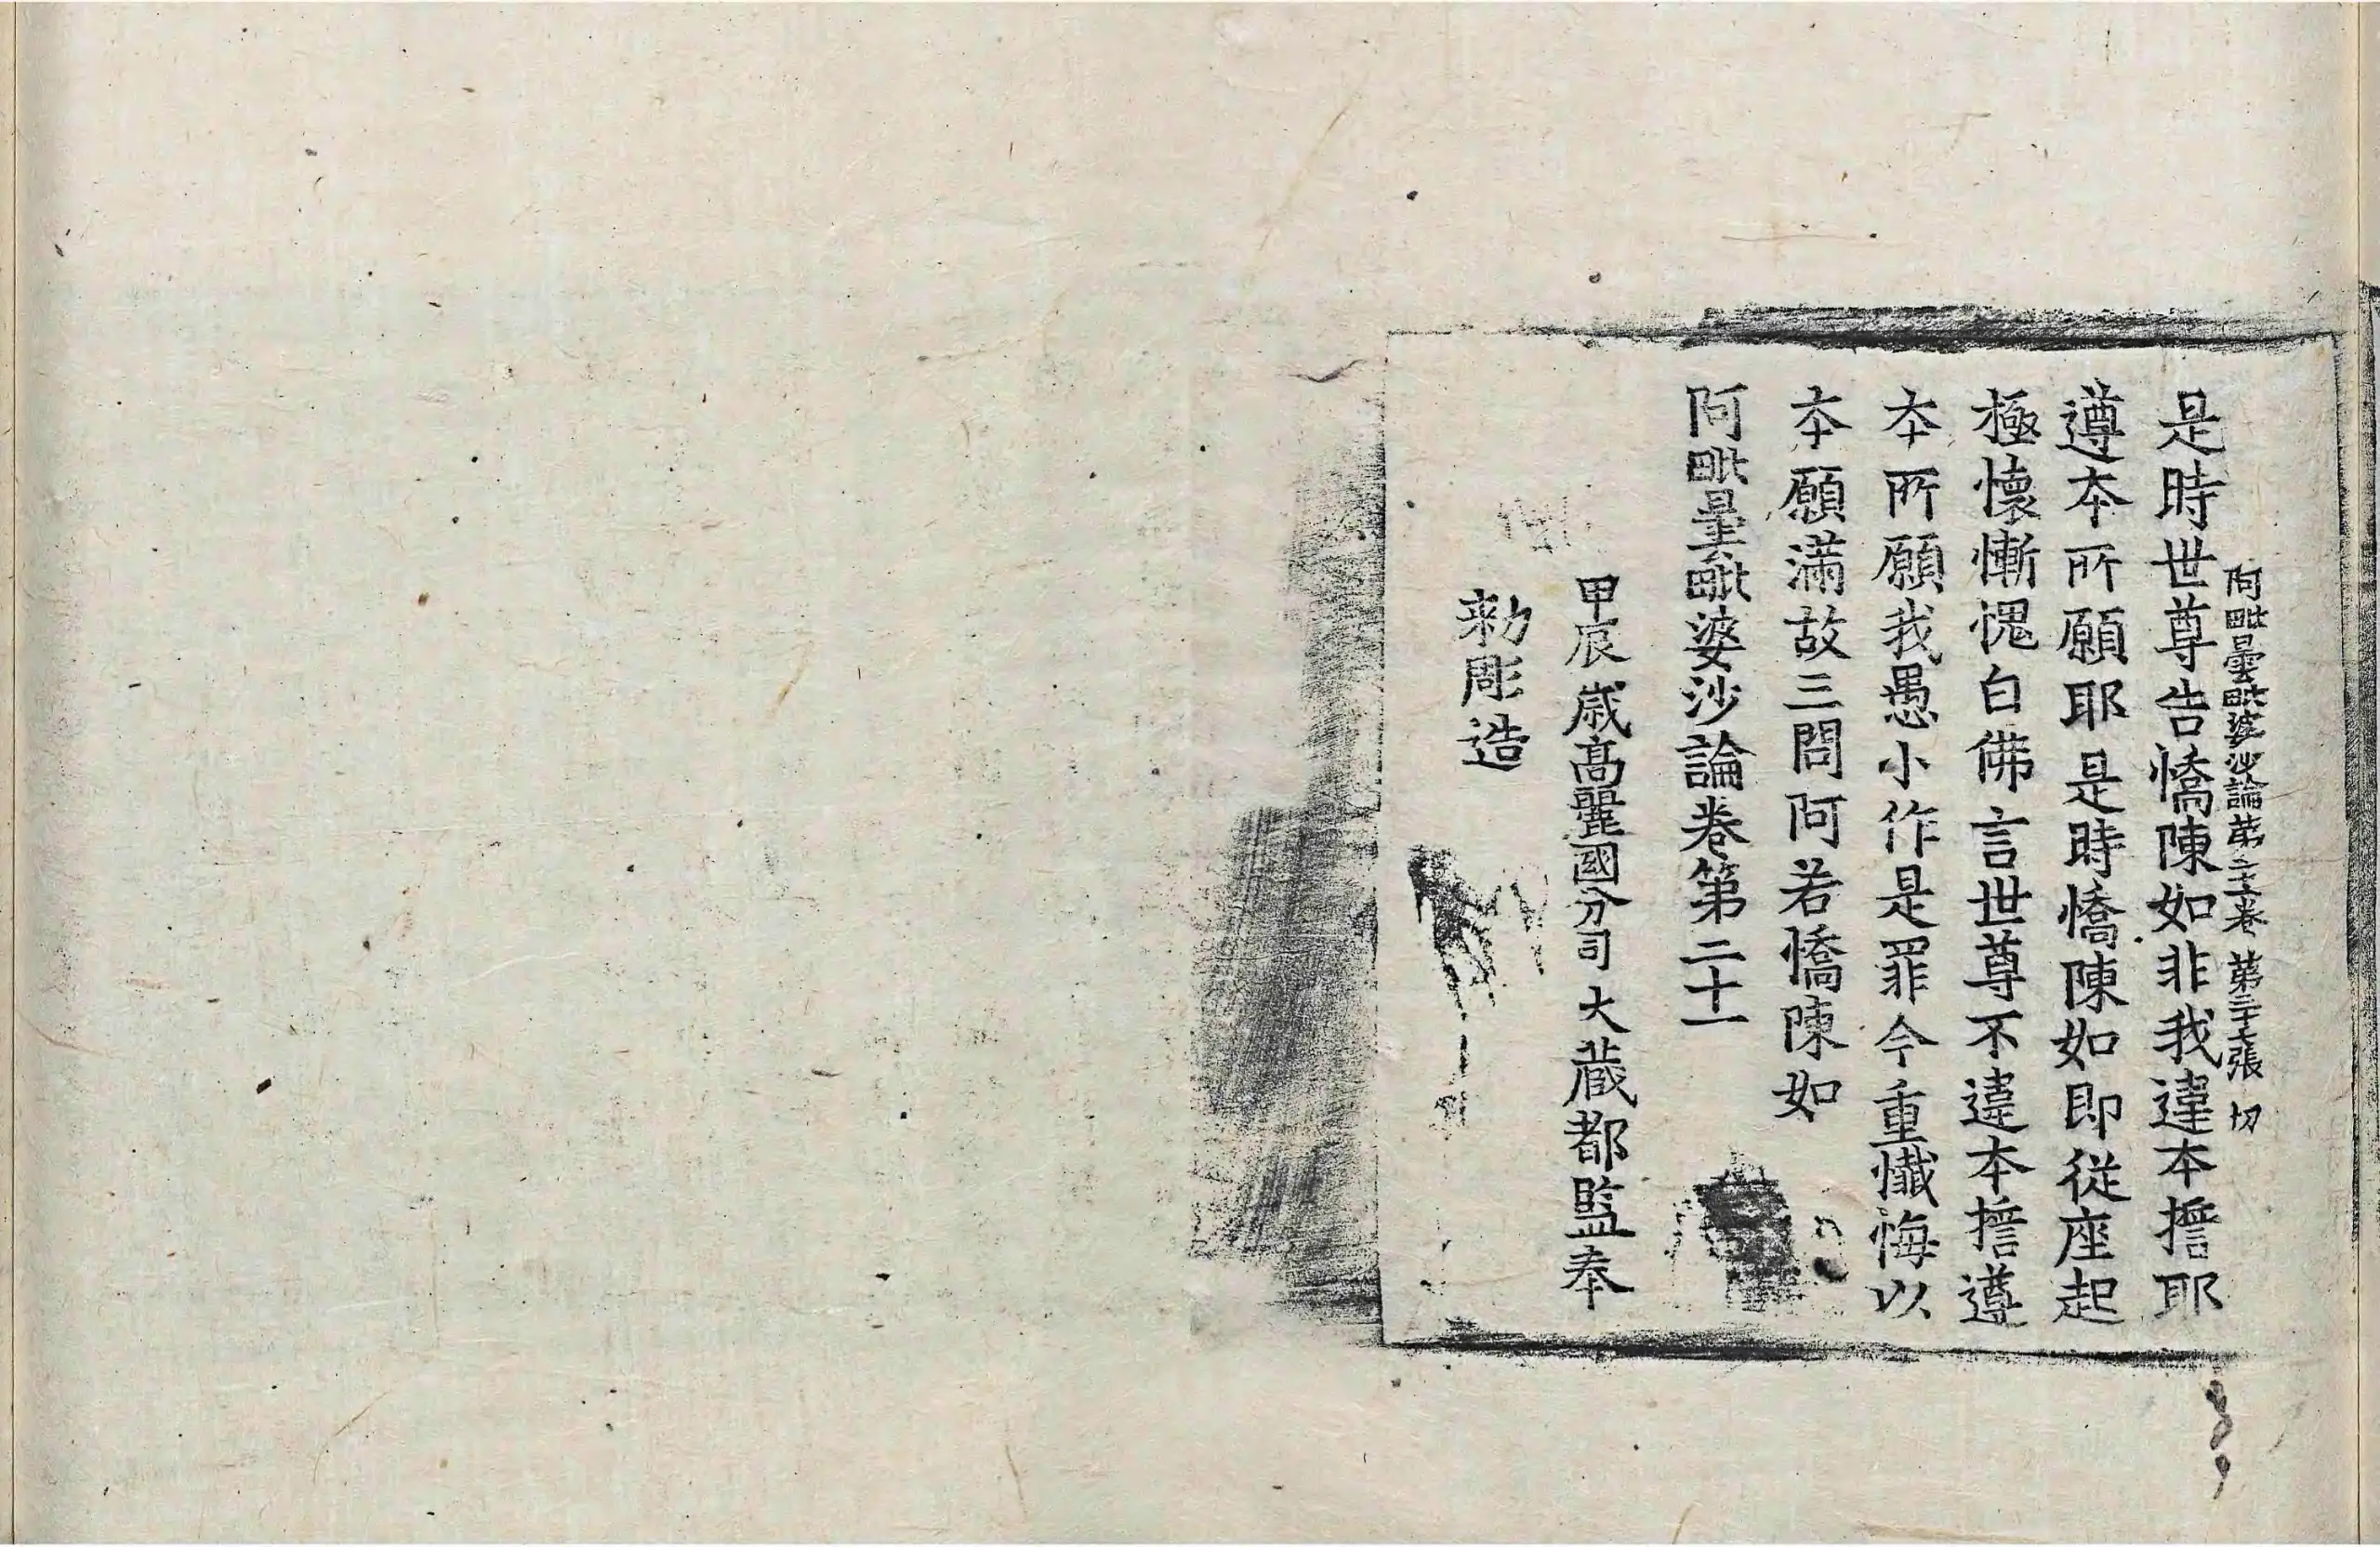 阿毗曇毗婆沙論第二十一卷 第二十七張 切
是時世尊告憍陳如非我違本擔耶
遵本所願耶是時憍陳如即從座起
極懷慚愧白佛言世尊不違本擔遵
本所願我愚小作是罪今重懺悔以
本願滿故三問阿若憍陳如
阿毗曇毗婆沙論卷第二十一
甲辰歲高麗國分司大藏都監奉
勑彫造